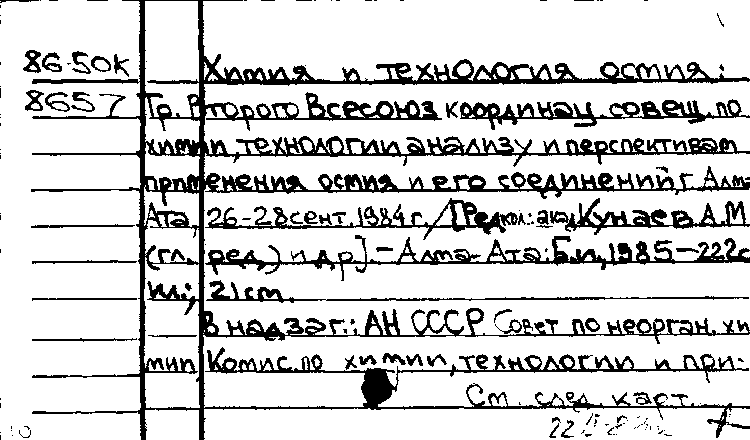 86-50к Химия и технология осмия:
8657 Тр. Второго Всесоюз координац. совещ. по
химии, технологии, анализу и перспективам
применения осмия и его соединений, г. Алма-
Ата, 26-28 сент. 1984 г. / [Редкол.: акад Кунаев А.М
(гл. ред.) и др]. - Алма-Ата: Б.и., 1985 - 222 с
ил.; 21 cm.
В надзаг.: АН СССР. Совет по неорган. хи
мии, Комис. по химии, технологии и при-
См. след. карт.